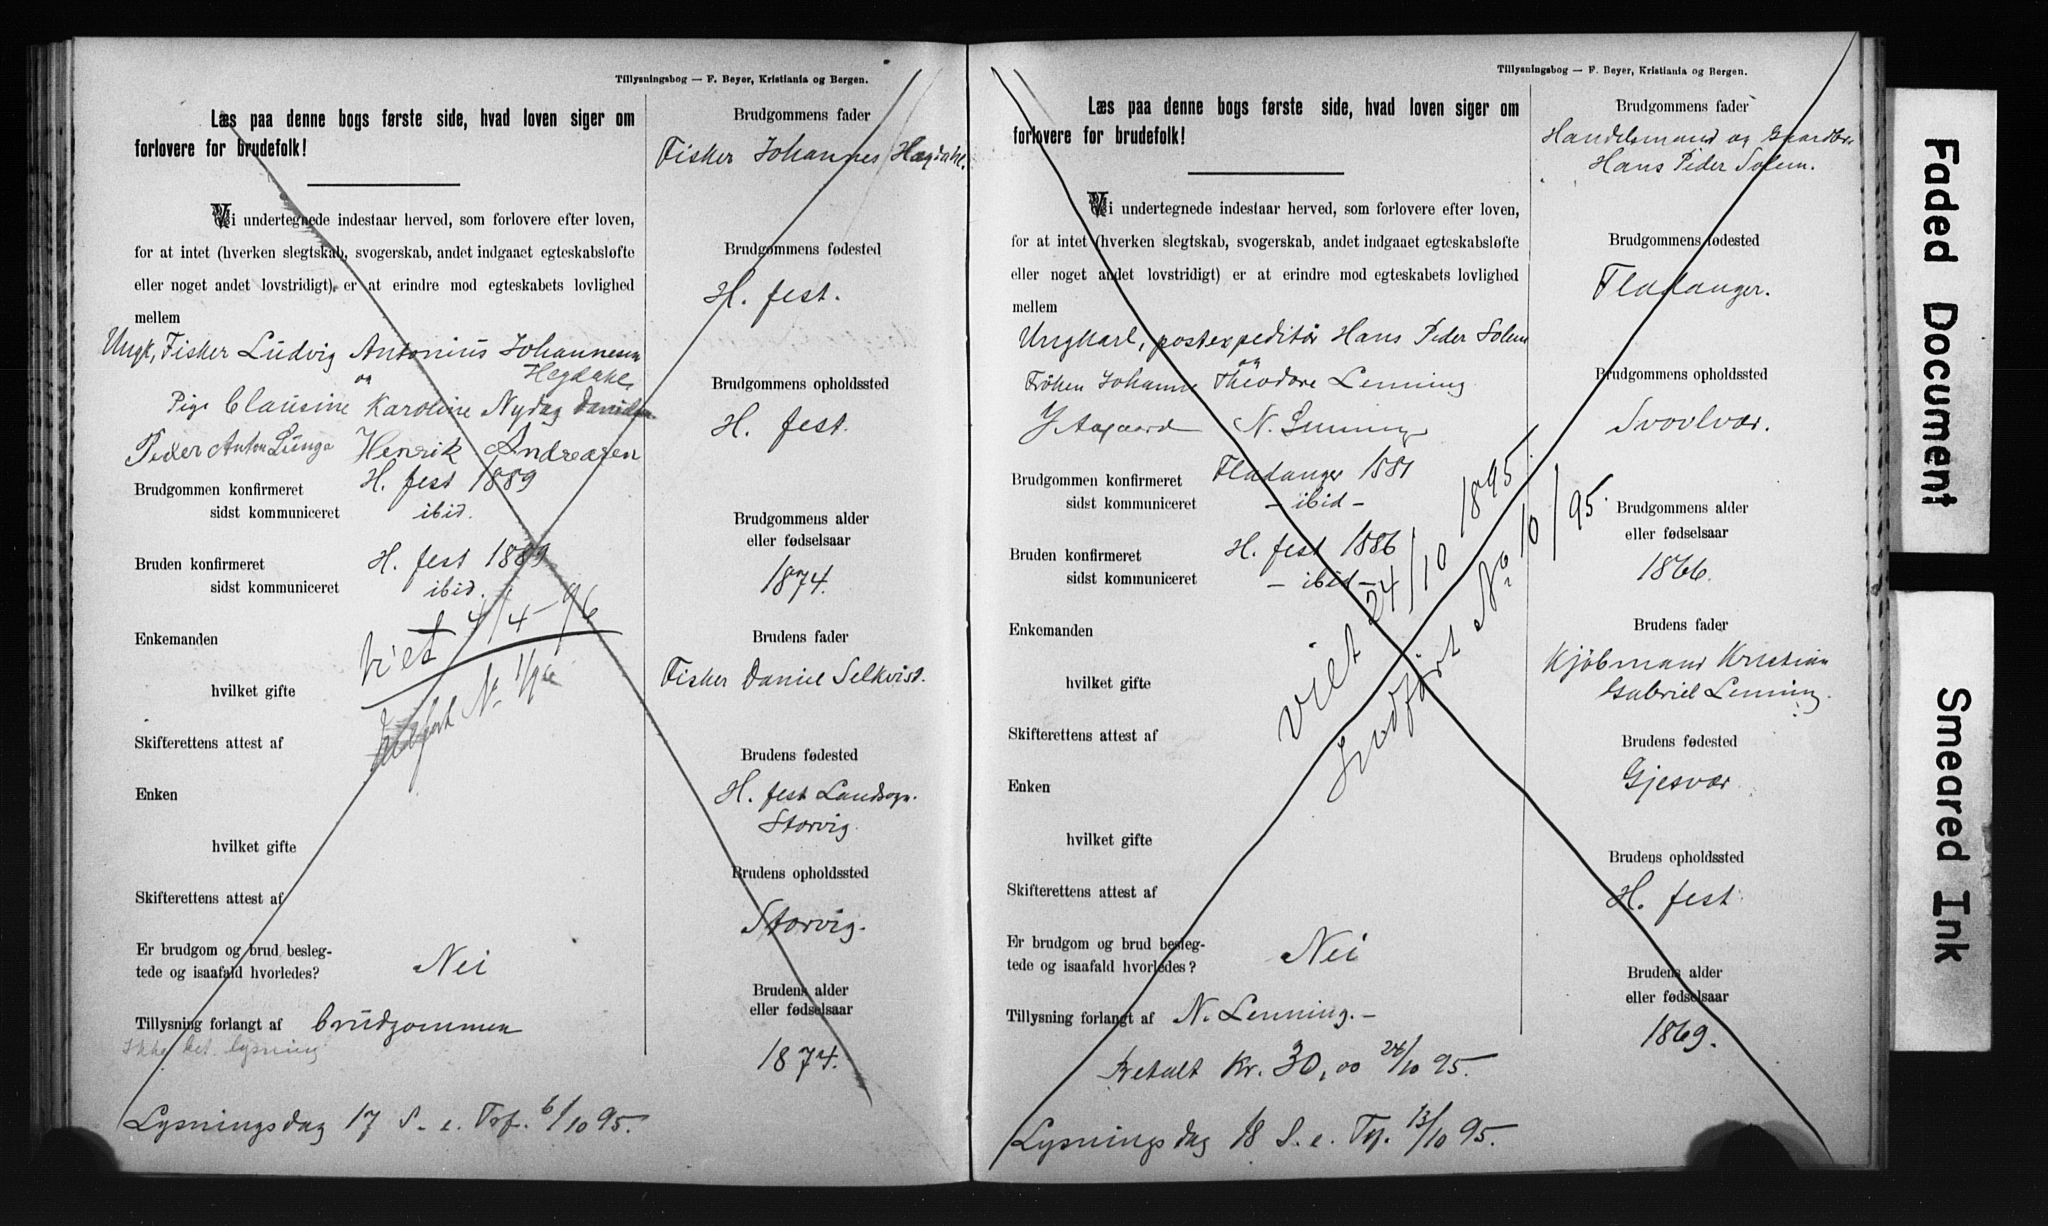 Tillysningsbog — F. Beyer, Kristiania og Bergen.
Læs paa denne bogs første side, hvad loven siger om
forlovere for brudefolk!
Vi undertegnede indestaar herved, som forlovere efter loven,
for at intet (hverken slegtskab, svogerskab, andet indgaaet egteskabsløfte
eller noget andet lovstridigt) er at erindre mod egteskabets lovlighed
mellem
Ungk, Fisker Ludvig Antonius Johannesen
Hegdahl
og
Pige Clausine Karoline Nydag
Peder Anton Henrik Andreasen
Brudgommen konfirmeret H. fest 1889
sidst kommuniceret ibid.
Bruden konfirmeret H. fest 1889
sidst kommuniceret ibid.
Enkemanden
Viet 4/4-96
hvilket gifte
Indført No 1/96
Skifterettens attest af
Enken
hvilket gifte
Skifterettens attest af
Er brudgom og brud besleg-
tede og isaafald hvorledes? Nei
Tillysning forlangt af brudgommen
Ikke bet. lysning
Lysningsdag 17 S. e. Trf. 6/10 95.
Brudgommens fader
Fisker Johannes Hegdahl.
Brudgommens fødested
H. fest.
Brudgommens opholdssted
H. fest.
Brudgommens alder
eller fødselsaar
1874.
Brudens fader
Fisker Daniel Selkvist.
Brudens fødested
H. fest Landsogn.
Storvig.
Brudens opholdssted
Storvig.
Brudens alder
eller fødselsaar
1874.
Tillysningsbog — F. Beyer, Kristiania og Bergen.
Læs paa denne bogs første side, hvad loven siger om
forlovere for brudefolk!
Vi undertegnede indestaar herved, som forlovere efter loven,
for at intet (hverken slegtskab, svogerskab, andet indgaaet egteskabsløfte
eller noget andet lovstridigt) er at erindre mod egteskabets lovlighed
mellem
Ungkarl, postexpeditør Hans Peder Solem
og
Frøken Johanne Theodore Lenning
Aagaard N. Lenning
Brudgommen konfirmeret Fladanger 1881
sidst kommuniceret - ibid -
Bruden konfirmeret H. fest 1886
sidst kommuniceret - ibid -
Enkemanden
viet 24/10 1895
hvilket gifte
Indført No 10/95.
Skifterettens attest af
Enken
hvilket gifte
Skifterettens attest af
Er brudgom og brud besleg-
tede og isaafald hvorledes? Nei
Tillysning forlangt af N. Lenning. -
Betalt Kr. 30,00 24/10 95.
Lysningsdag 18 S. e. Trf. 13/10 95.
Brudgommens fader
Handelsmand og Gaardbr.
Hans Peder Solem.
Brudgommens fødested
Fladanger.
Brudgommens opholdssted
Svovlvær.
Brudgommens alder
eller fødselsaar
1866.
Brudens fader
Kjøbmand Kristian
Gabriel Lenning.
Brudens fødested
Gjesvær
Brudens opholdssted
H. fest
Brudens alder
eller fødselsaar
1869.
Faded Document
Smeared Ink